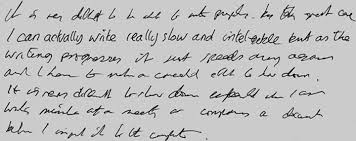 It is very difficult to be able to write
I can actually write really slow and intelligible but as the
writing progresses it just speeds away again
and I have to make a concerted effort to slow down.
It is very difficult to slow down especially when I am
writing minutes at a meeting or composing a document
before I input it to the computer.